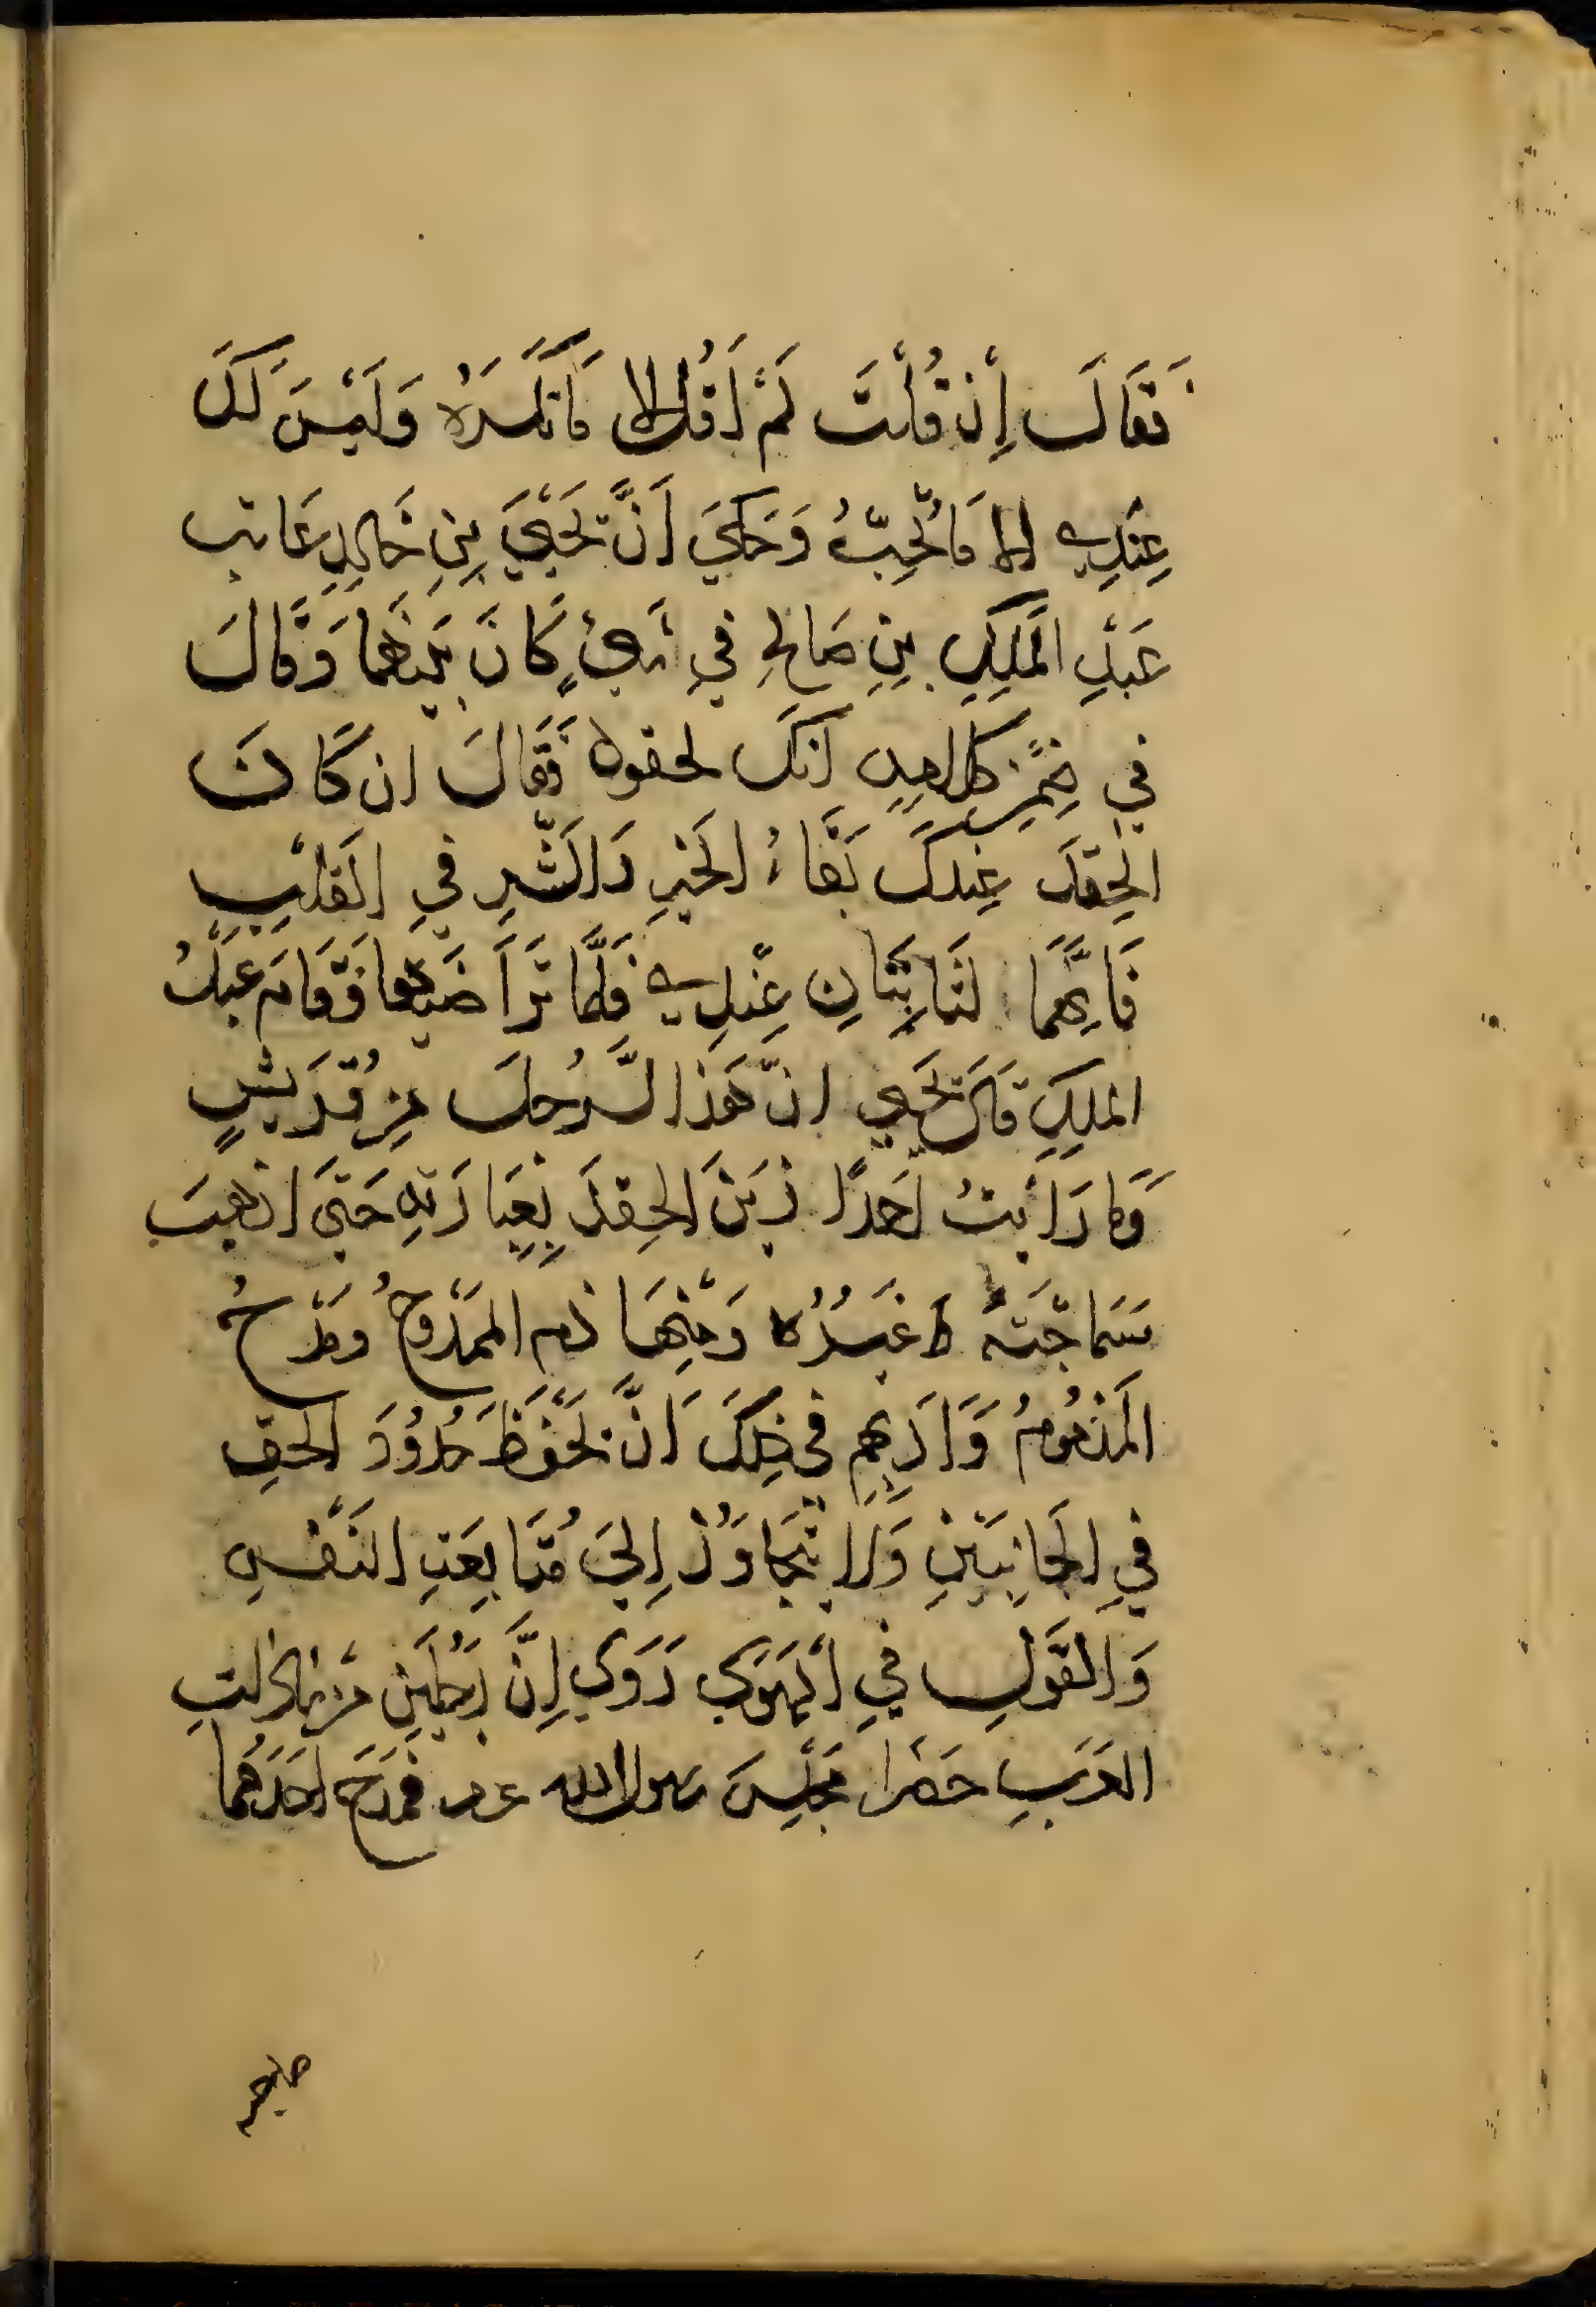 فَقَالَ إِنْ قُلْتَ لَمْ أَقُلْ إلا مَا تَكْرَهُ وَلَيْسَ لَكَ
عِنْدِي إلا مَا تُحِبُّ وَحَكَيَ أَنَّ يَحْيَيَ بِنِ خَالِدِ عَاتب
عَبْدِ الْمَلِكِ بِنِ صَالحِ فِي شَيْءٍ كَانَ بَيْنَهُمَا وَقَالَ
فِي كلامه انكَ لحقود فَقَالَ ان كَانَ
الحِقدَ عِندكَ بَقَاءُ الخَيْرِ وَالشَّرِ فِي القَلْبِ
فَاِنَّهُمَا لَثَابِتَانِ عِنْدِي فَلَمَّا تَرَاضَيَا وَقَامَ عَبْدُ
الملِكِ قَالَ يَحْيي انّ هَذا الرَّجُلَ مِن قُرَيشٍ
وَمَا رَأَيتُ أحَدًا زَيَّنَ الحِقدَ بِعِبَارَتِهِ حَتيَ اذهبَ
سَمَاجَتَهُ غَيْرُهُ وَمِنْهَا ذم الممَدُوحُ وَمَدْحُ
المَذْمُومُ وَاَدَبهِم فِي ذلِكَ اَنَّ يَحْفَظَ حُدُودَ الحَقِ
فِي الجَانِبَيْنِ وَلَا يَتَجَاوَزُ اِليَ مُتَابِعَتِ النَفْسِ
وَالقَوْلِ فِي الْهَوَي رَوَي اِنَّ رَجُلَيْنِ مْن
العَرَبِ حَضَرا مَجْلِسَ رسول الله عم فَمَدَحَ اَحَدَهُمَا